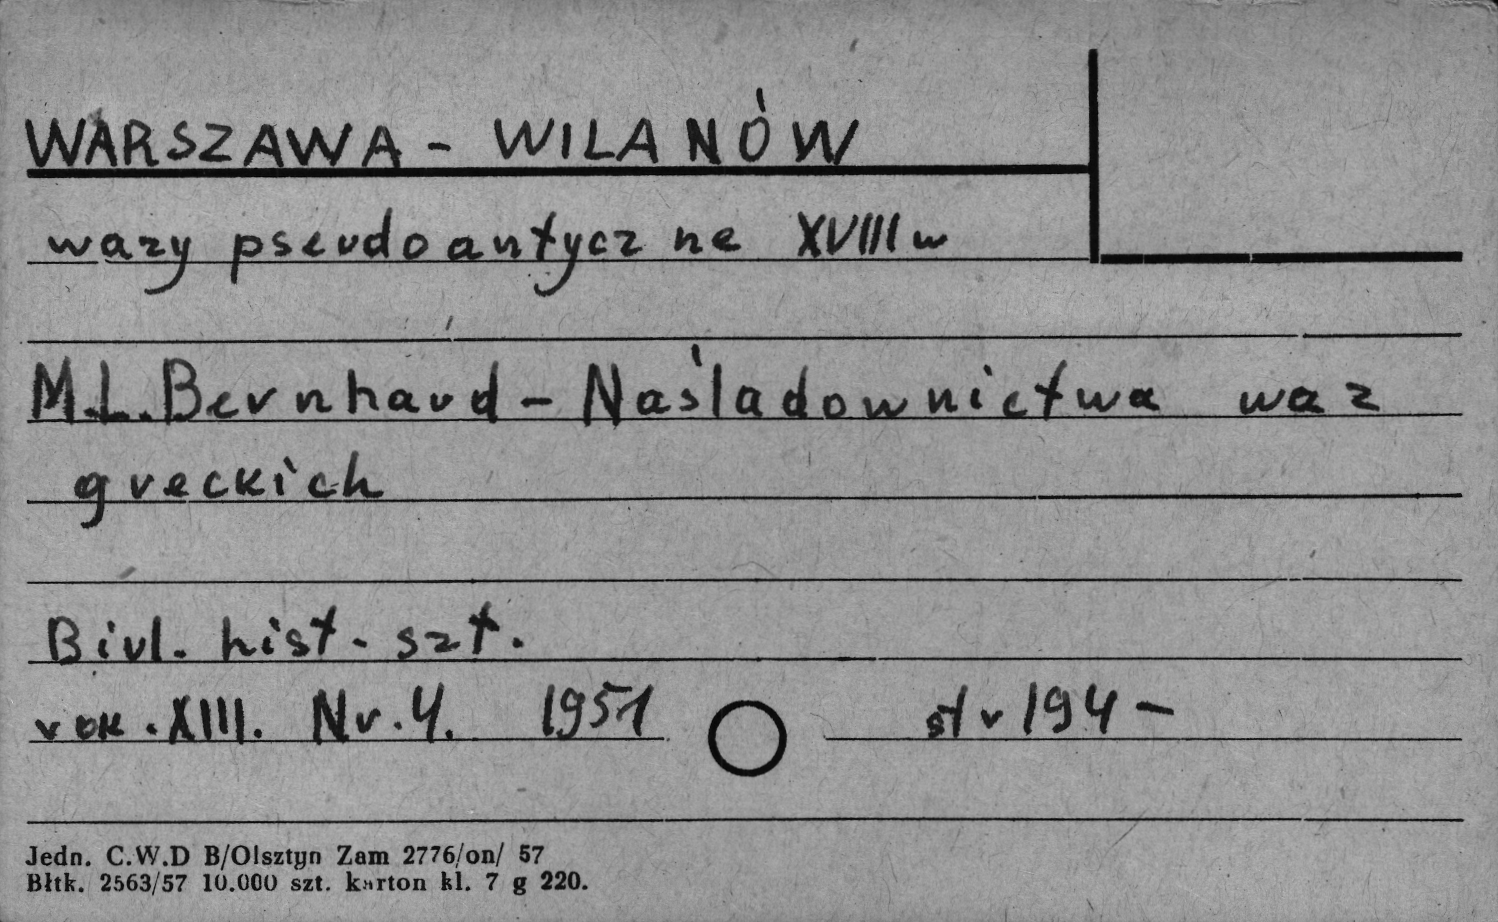 WARSZAWA - WILANÓW
wazy pseudoantyczne XVIII w
M.L. Bernhard - Naśladownictwa waz
greckich
Biul. hist. szt.
rok. XIII. Nr. 4. 1951 str 194 -
Jedn. C.W.D B/Olsztyn Zam 2776/on/ 57
Błtk. 2563/57 10.000 szt. karton kl. 7 g 220.